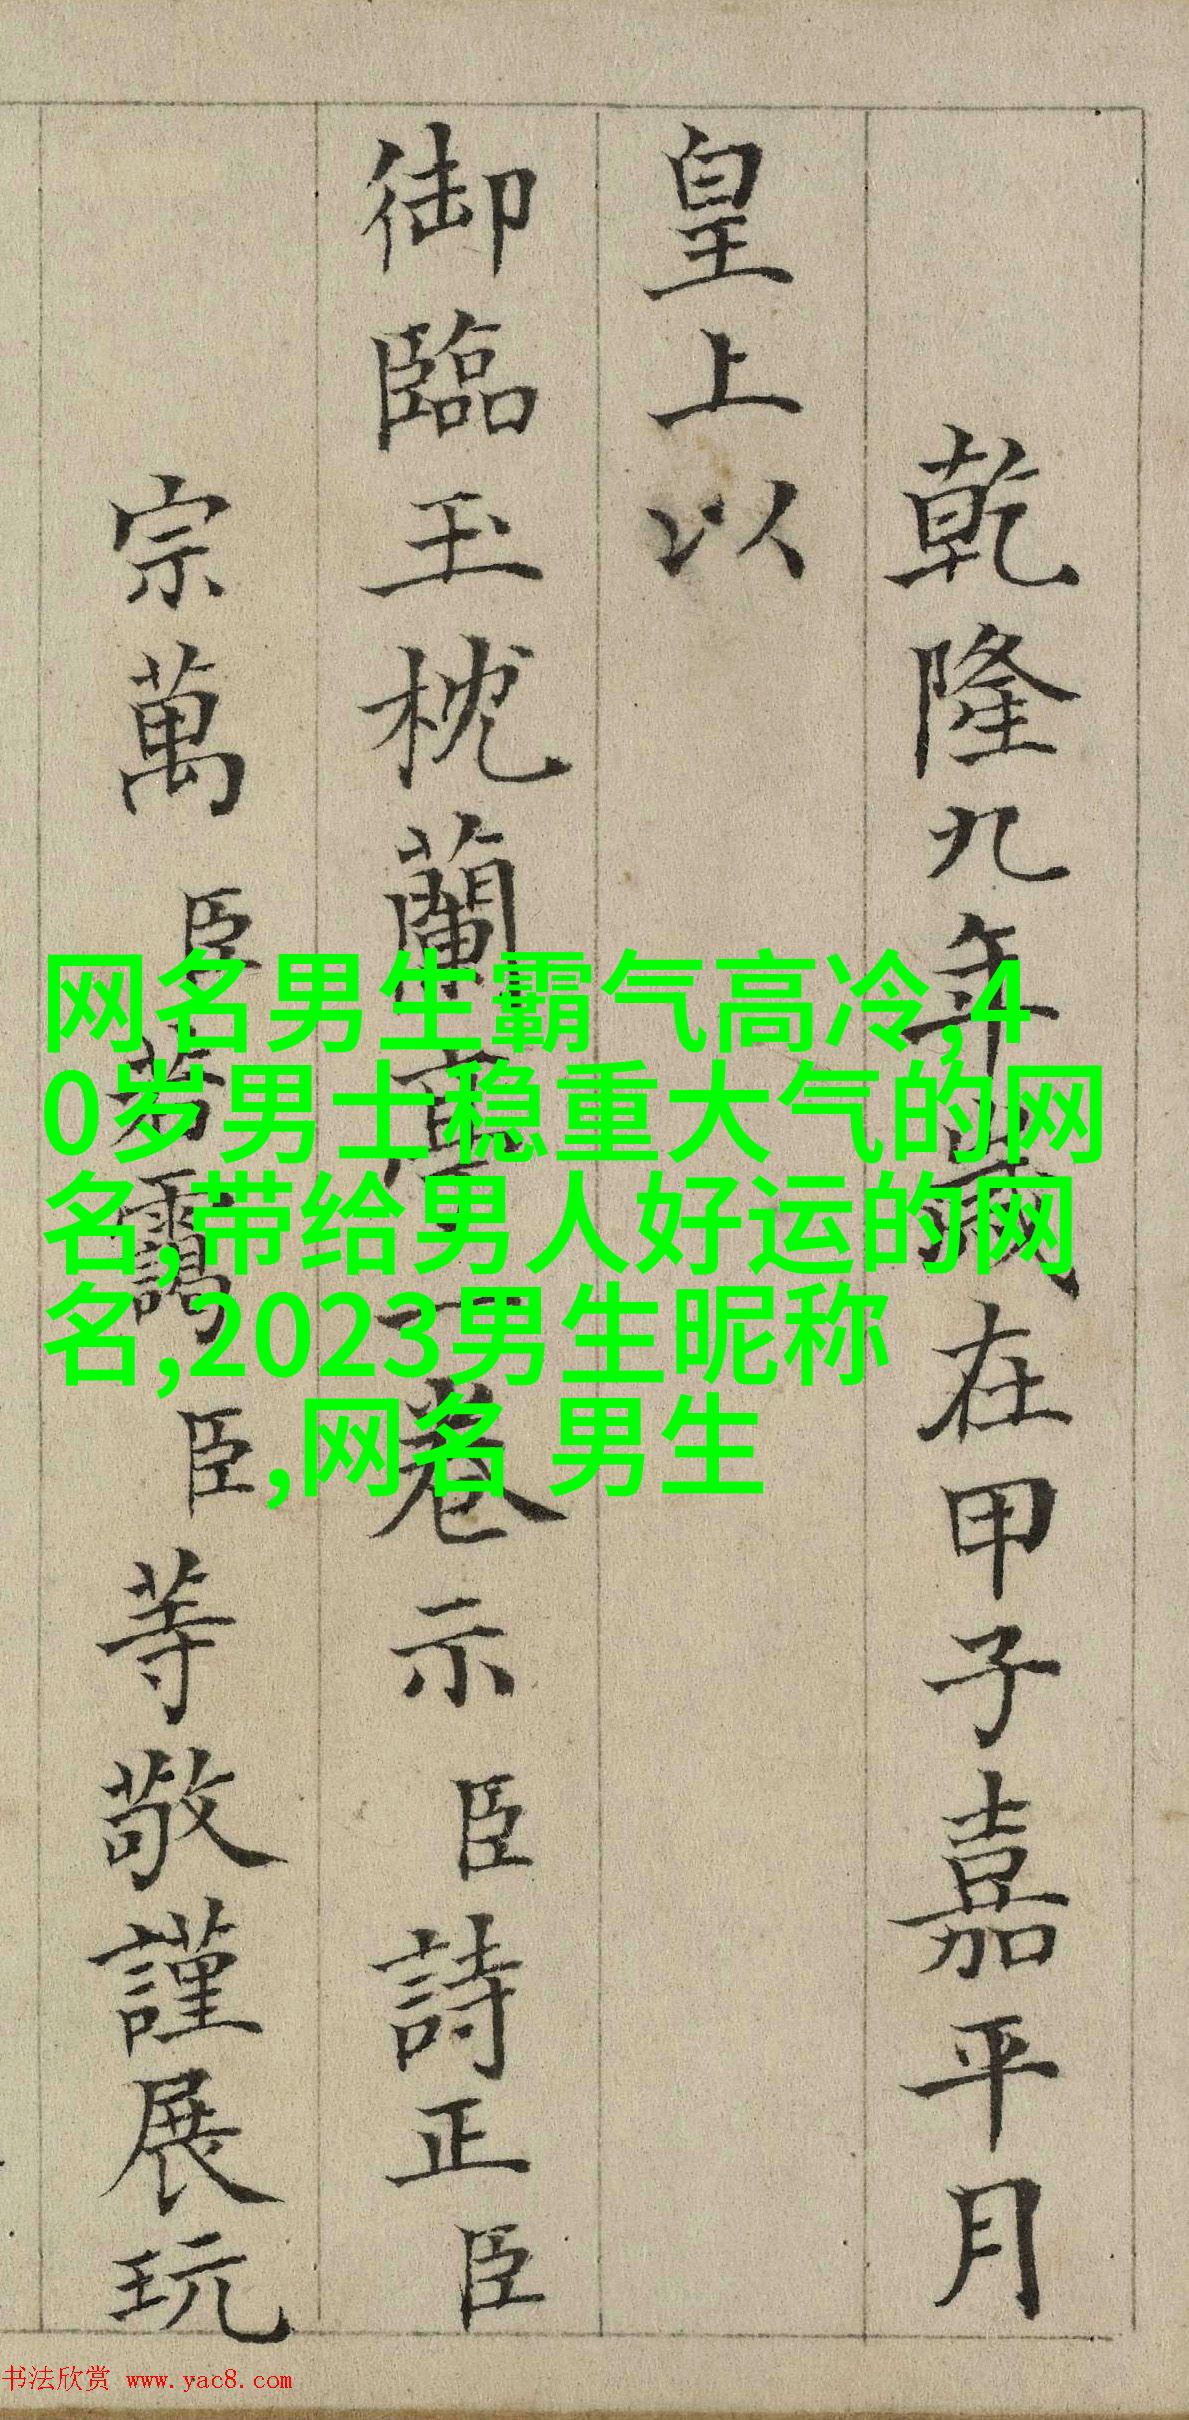 乾隆九年歲在甲子嘉平月
皇上以
御臨玉枕蘭亭一卷示臣詩正臣
宗萬臣若靄臣等敬謹展玩
网名男生霸气高冷,4
0岁男士稳重大气的网
名,带给男人好运的网
名,2023男生昵称
,网名 男生
书法欣赏 www.yac8.com